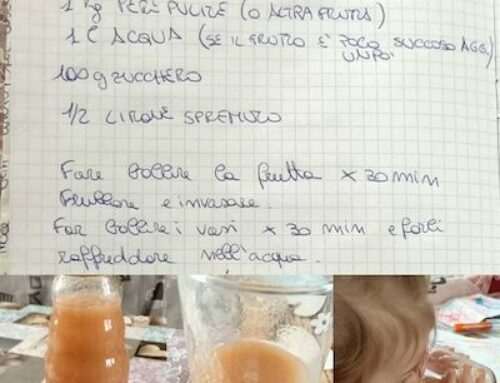 1 Kg PERE PULITE (O ALTRA FRUTTA)
1 L ACQUA (SE IL FRUTTO È POCO SUCCOSO AGG.
UN PO'
100 g ZUCCHERO
1/2 LIMONE SPREMUTO
Fare bollire la frutta x 30 min
Frullare e invasare.
Far bollire i vasi x 30 min e farli
raffreddare nell'acqua.